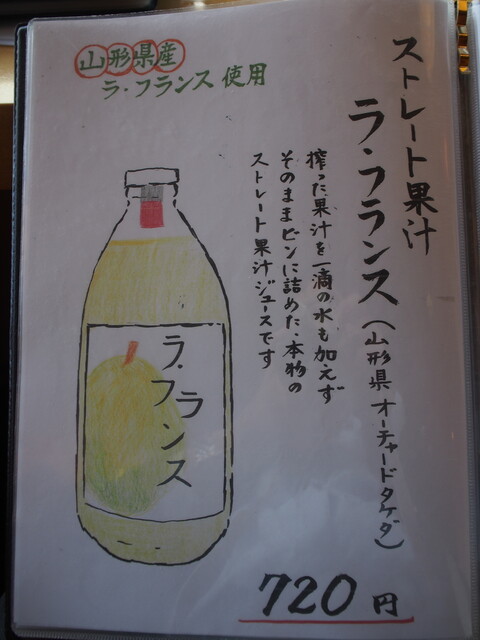 山形県産
ラ・フランス使用
ストレート果汁
ラ・フランス(山形県オーチャードタケダ)
搾った果汁を一滴の水も加えず
そのままビンに詰めた、本物の
ストレート果汁ジュースです
ラ・フランス
720円